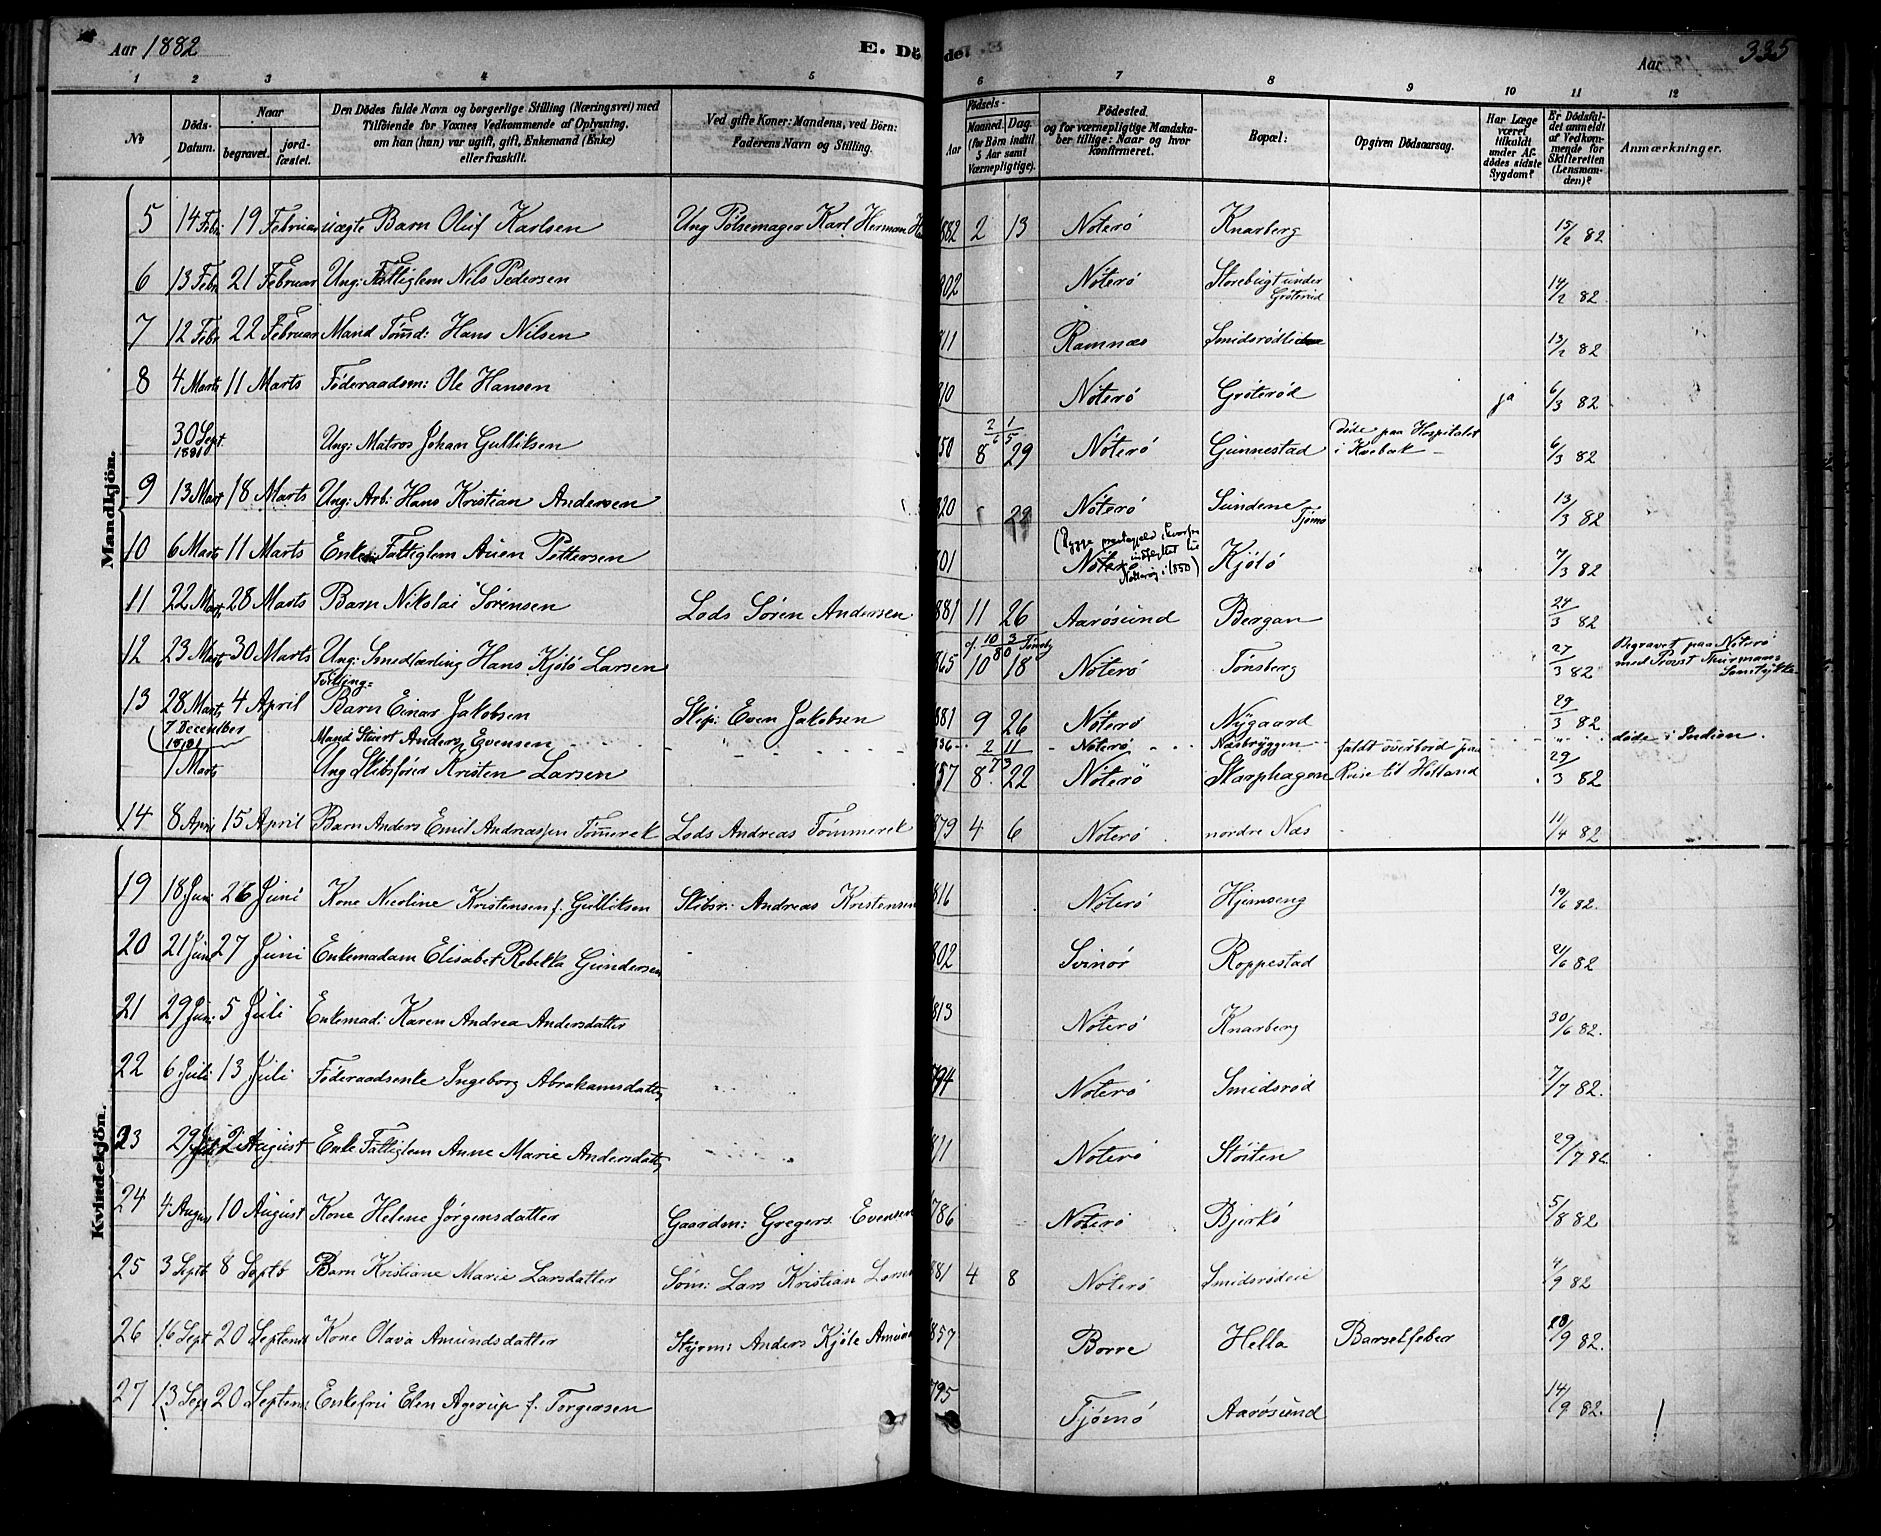 Aar 1882
E. Dö
del
Aar
335
1 2 3 4 5 6 7 8 9 10 11 12
No
Döds-Datum.
Naar
begravet.
jordfæstet.
Den Dödes fulde Navn og borgerlige Stilling (Næringsvei) med
Tilföiende for Voxnes Vedkommende af Oplysning,
om han (hun) var ugift, gift, Enkemand (Enke)
eller fraskilt.
Ved gifte Koner: Mandens, ved Börn:
Faderens Navn og Stilling.
Födsels-
Aar
Maaned. Dag.
(for Börn indtil
5 Aar samt
Værnepligtige).
Födested,
og for værnepligtige Mandska-
ber tillige: Naar og hvor
konfirmeret.
Bopæl:
Opgiven Dödsaarsag.
Har Læge
været
tilkaldt
under Af-
dödes sidste
Sygdom?
Er Dödsfal-
det anmeldt
af Vedkom-
mende for
Skifteretten
(Lensman-
den)?
Anmærkninger.
Mandkjön.
5 14 Febr 19 Februar uægte Barn Oluf Karlsen Ung Pølsemager Karl Herman 882 2 13 Nøterø Knarberg 15/2 82
6 13 Febr 21 Februar Ung: Fattiglem Nils Pedersen 802 Nøterø Storebugt under Grøterød 14/2 82
7 12 Febr 22 Februar Mand Tømd: Hans Nilsen 811 Ramnæs 13/2 82
8 4 Marts 11 Marts Føderaadsm: Ole Hansen 810 Nøterø Grøterød ja 6/3 82
30 Sept 1881 Ung: Matros Johan Gulliksen 850 8 29 Nøterø Gunnestad Døde paa Hospitalet i Kvebek 6/3 82
9 13 Mart 18 Marts Ung: Arb: Hans Kristian Andersen 820 29 Nøterø Sundene Tjømø 13/3 82
10 6 Marts 11 Marts Fattiglem Auen Pettersen 801 Nøterø Kjøtø 7/3 82
(Rygge præstegjeld, hvorfra indflyttet til Nøtterøy i 1850)
11 22 Marts 28 Marts Barn Nikolai Sørensen Lods Søren Andersen 881 11 26 Aarøsund Bergan 24/3 82
12 23 Mart 30 Marts Ung: Smedlærling Hans Kjøtø Larsen 865 10 18 Nøterø Tønsberg 27/3 82 Begravet paa Nøterø med Provst Thurmans Samtykke
13 28 Marts 4 April Tvilling- Barn Einar Jakobsen Skip: Even Jakobsen 881 9 26 Nøterø Nygaard 29/3 82
7 December 1881 Mand Stuert Anders Evensen 836 2 11 Nøterø Næsbryggen døde i Indien.
1 Marts Ung Skibsfører Kristen Larsen 857 8 22 Nøterø Skarphagen faldt overbord paa Reise til Holland 29/3 82
14 8 April 15 April Barn Anders Emil Andreassen Tømmerek Lods Andreas Tømmerek 879 4 6 Nøterø nordre Næs 11/4 82
Kvindekjön.
19 18 Juni 26 Juni Kone Nicoline Kristensen f. Gulliksen Skibsr: Andreas Kristensen 816 Nøterø Hjemseng 19/6 82.
20 21 Juni 27 Juni Enkemadam Elisabet Rebekka Gundersen 802 Svinør Roppestad 21/6 82
21 29 Juni 5 Juli Enkemad: Karen Andrea Andersdatter 813 Nøterø Knarberg 30/6 82.
22 6 Juli 13 Juli Føderaadsenke Ingeborg Abrahamsdatter 794 Nøterø Smidsrød 7/7 82.
23 29 Juli 2 August Enke Fattiglem Anne Marie Andersdatter Nøterø Støiten 29/7 82.
24 4 August 10 August Kone Helene Jørgensdatter Gaardm: Gregers Evensen 786 Nøterø Bjerkø 5/8 82
25 3 Septb 8 Septb Barn Kristiane Marie Larsdatter Søm: Lars Kristian 881 4 8 Nøterø Smidsrødeie 4/9 82
26 16 Sept 20 Septemb Kone Olava Amundsdatter Styrm: Anders Kjøle 857 Borre Hella Barselfeber 18/9 82.
27 13 Sept 20 Septemb Enkefru Elen Agerup f. Torgersen 795 Tjømø Aarøsund 14/9 82.